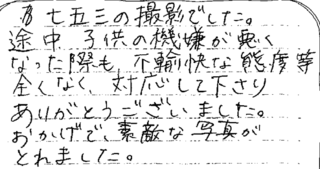 七五三の撮影でした。
途中子供の機嫌が悪く
なった際も、不輸快な態度等
全くなく、対応して下さり
ありがとうございました。
おかげで、素敵な写真が
とれました。